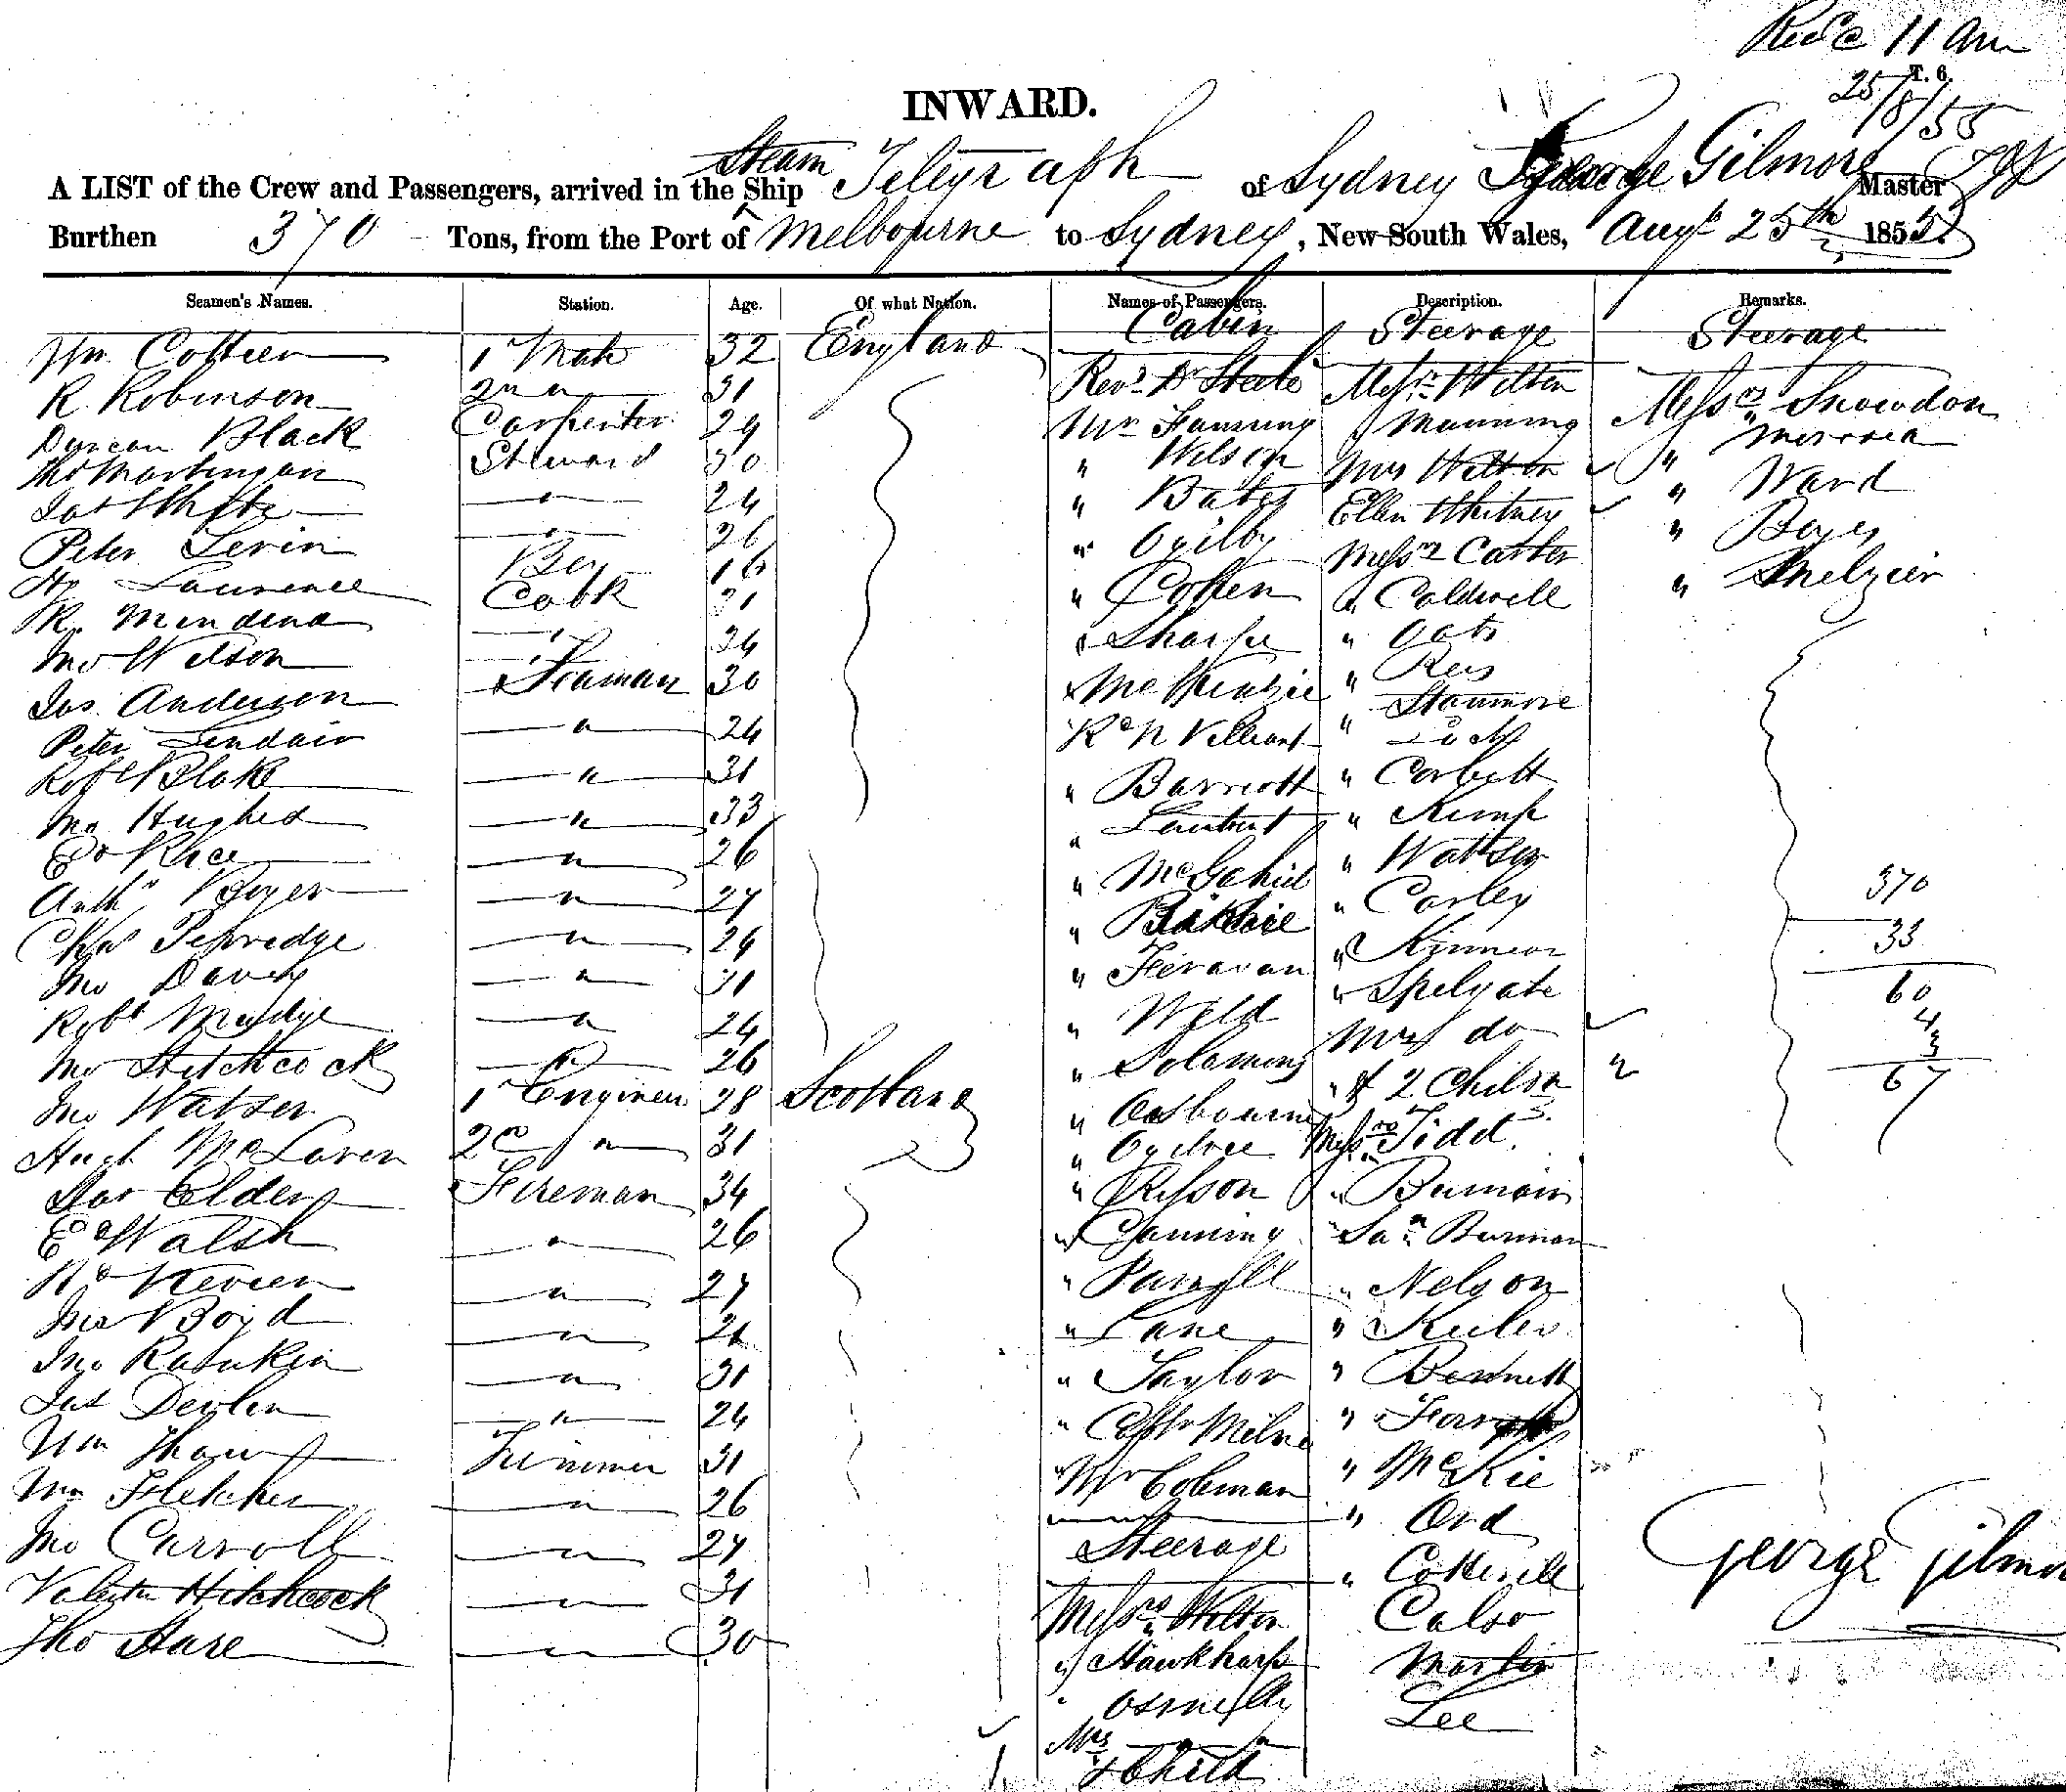 Recd 11 am
T. 6.
25/8/55
INWARD.
A LIST of the Crew and Passengers, arrived in the Steam Ship Telegraph of Sydney George Gilmore Master
Burthen 370 Tons, from the Port of Melbourne to Sydney, New South Wales, Augt 25th 1855
Seamen's Names. Station. Age. Of what Nation. Names of Passengers. Description. Remarks.
Wm Cottier 1 Mate 32 England
R. Robinson 2nd " 31
Duncan Black Carpenter 29
Steward 30
Jas White " 24
Peter Levin " 26
Hy Laurence Boy 16
R. Mendena Cook 31
Jno Wilson " 24
Jas Anderson Seaman 30
Peter Sinclair " 24
Robt Blake " 31
Jno Hughes " 33
Ed Rice " 26
Anthy Boyer " 27
Chas " 29
Jno Davey " 31
Robt Mudge " 24
Jno Hitchcock " 26
Jno Watson 1 Engineer 28 Scotland
Hugh McLaren 2d " 31
Jas Elder Fireman 34
Ed Walsh " 26
Rd " 27
Jno Boyd " 21
Jno Rankin " 31
Jas Devlin " 24
Wm Shaw Trimmer 31
Wm Fletcher " 26
Jno Carroll " 27
Valentin Hitchcock " 31
Tho Hare " 30
Cabin
Revd Dr Steele
Mr Fanning
" Wilson
" Bates
" Ogilby
" Cohen
" Sharpe
" McKenzie
" Barriott
" Lambert
" McGahie
" Ritchie
" Weld
" Solomons
" Osbourne
" Ogilvie
" Rysson
" Canning
" Parnell
" Lane
" Taylor
" Captn Milne
" Mr Coleman
Steerage
Messrs Wilton
"
"
Mrs "
& Child
Steerage
Messrs Wilton
" Manning
Mrs Wilton
Ellen Whitney
Messrs Carter
" Caldwell
" Oats
" Rees
" Stanmore
"
" Corbett
" Kemp
" Watson
" Corley
" Kinnear
" Spelgate
Mrs do
" & 2 Children
Messrs Tidd
" Burman
" Saml Burman
" Nelson
" Keeler
" Bennett
" Forsyth
" McKie
" Ord
" Cotterill
Calso
Martin
Lee
Steerage
Messrs Snowdon
"
" Ward
" Boyes
"
370
33
60
4
3
67
George Gilmore